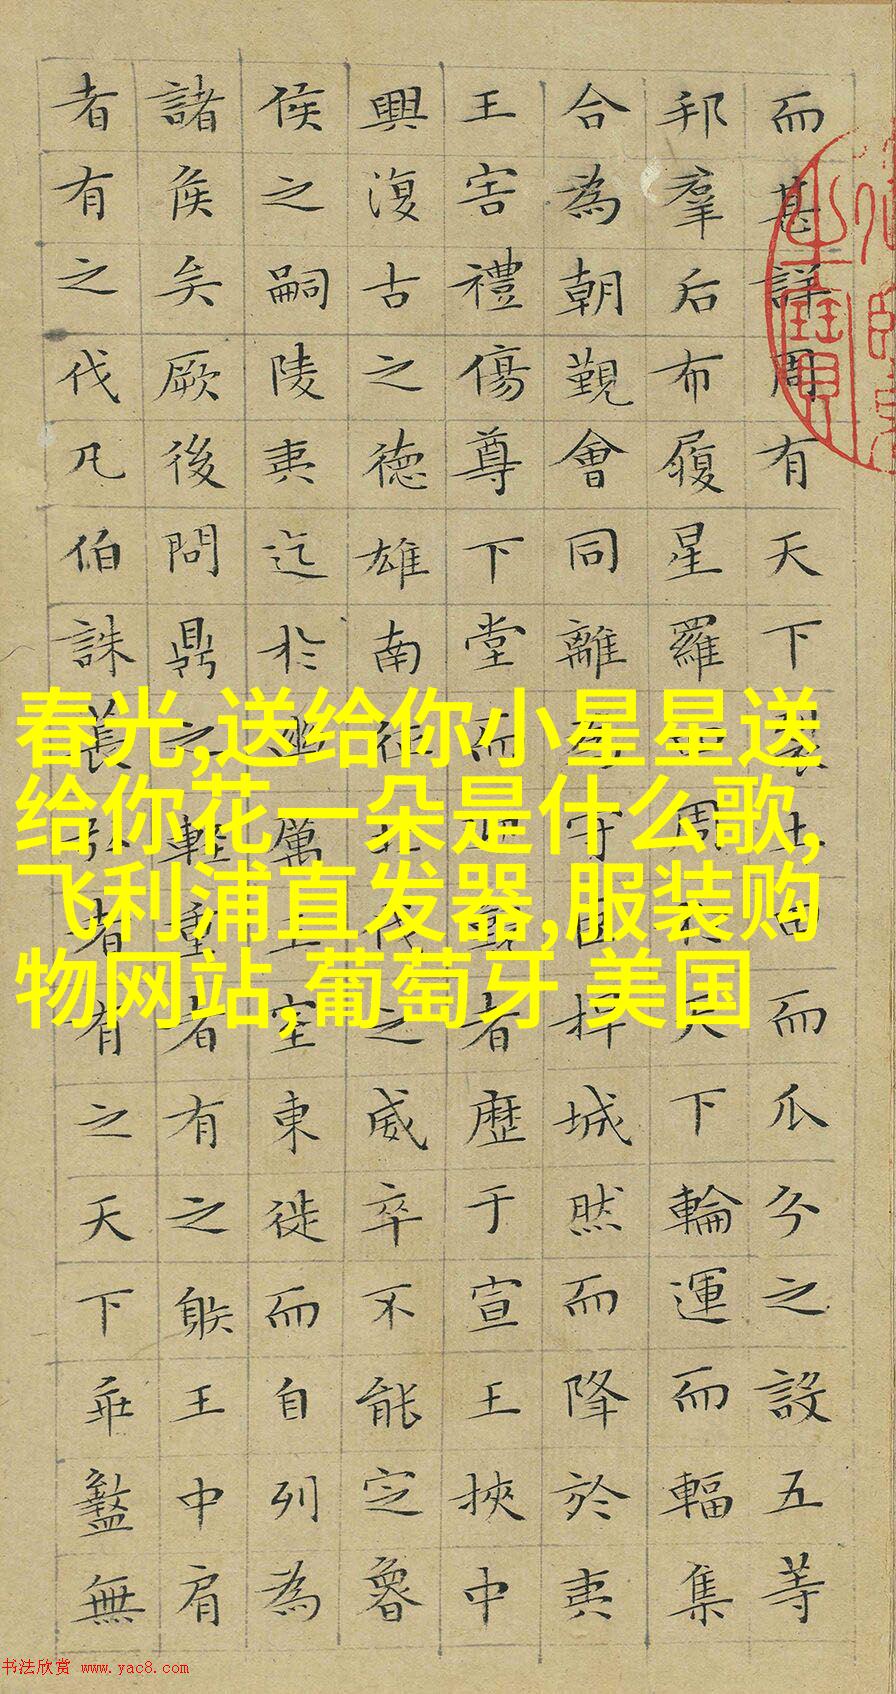 而甚詳周有天下裂土田而瓜分之設五等
邦羣后布履星羅四周於天下輪運而輻集
合為朝覲會同離為守臣扞城然而降於夷
王害禮傷尊下堂而迎覲者歷于宣王挾中
興復古之德雄南征北伐之威卒不能定魯
侯之嗣陵夷迄於幽厲王室東徙而自列為
諸侯矣厥後問鼎之輕重者有之䠶王中肩
者有之伐凡伯誅萇弘者有之天下乖盭無
春光,送给你小星星送
给你花一朵是什么歌,
飞利浦直发器,服装购
物网站,葡萄牙 美国
书法欣赏 www.yac8.com